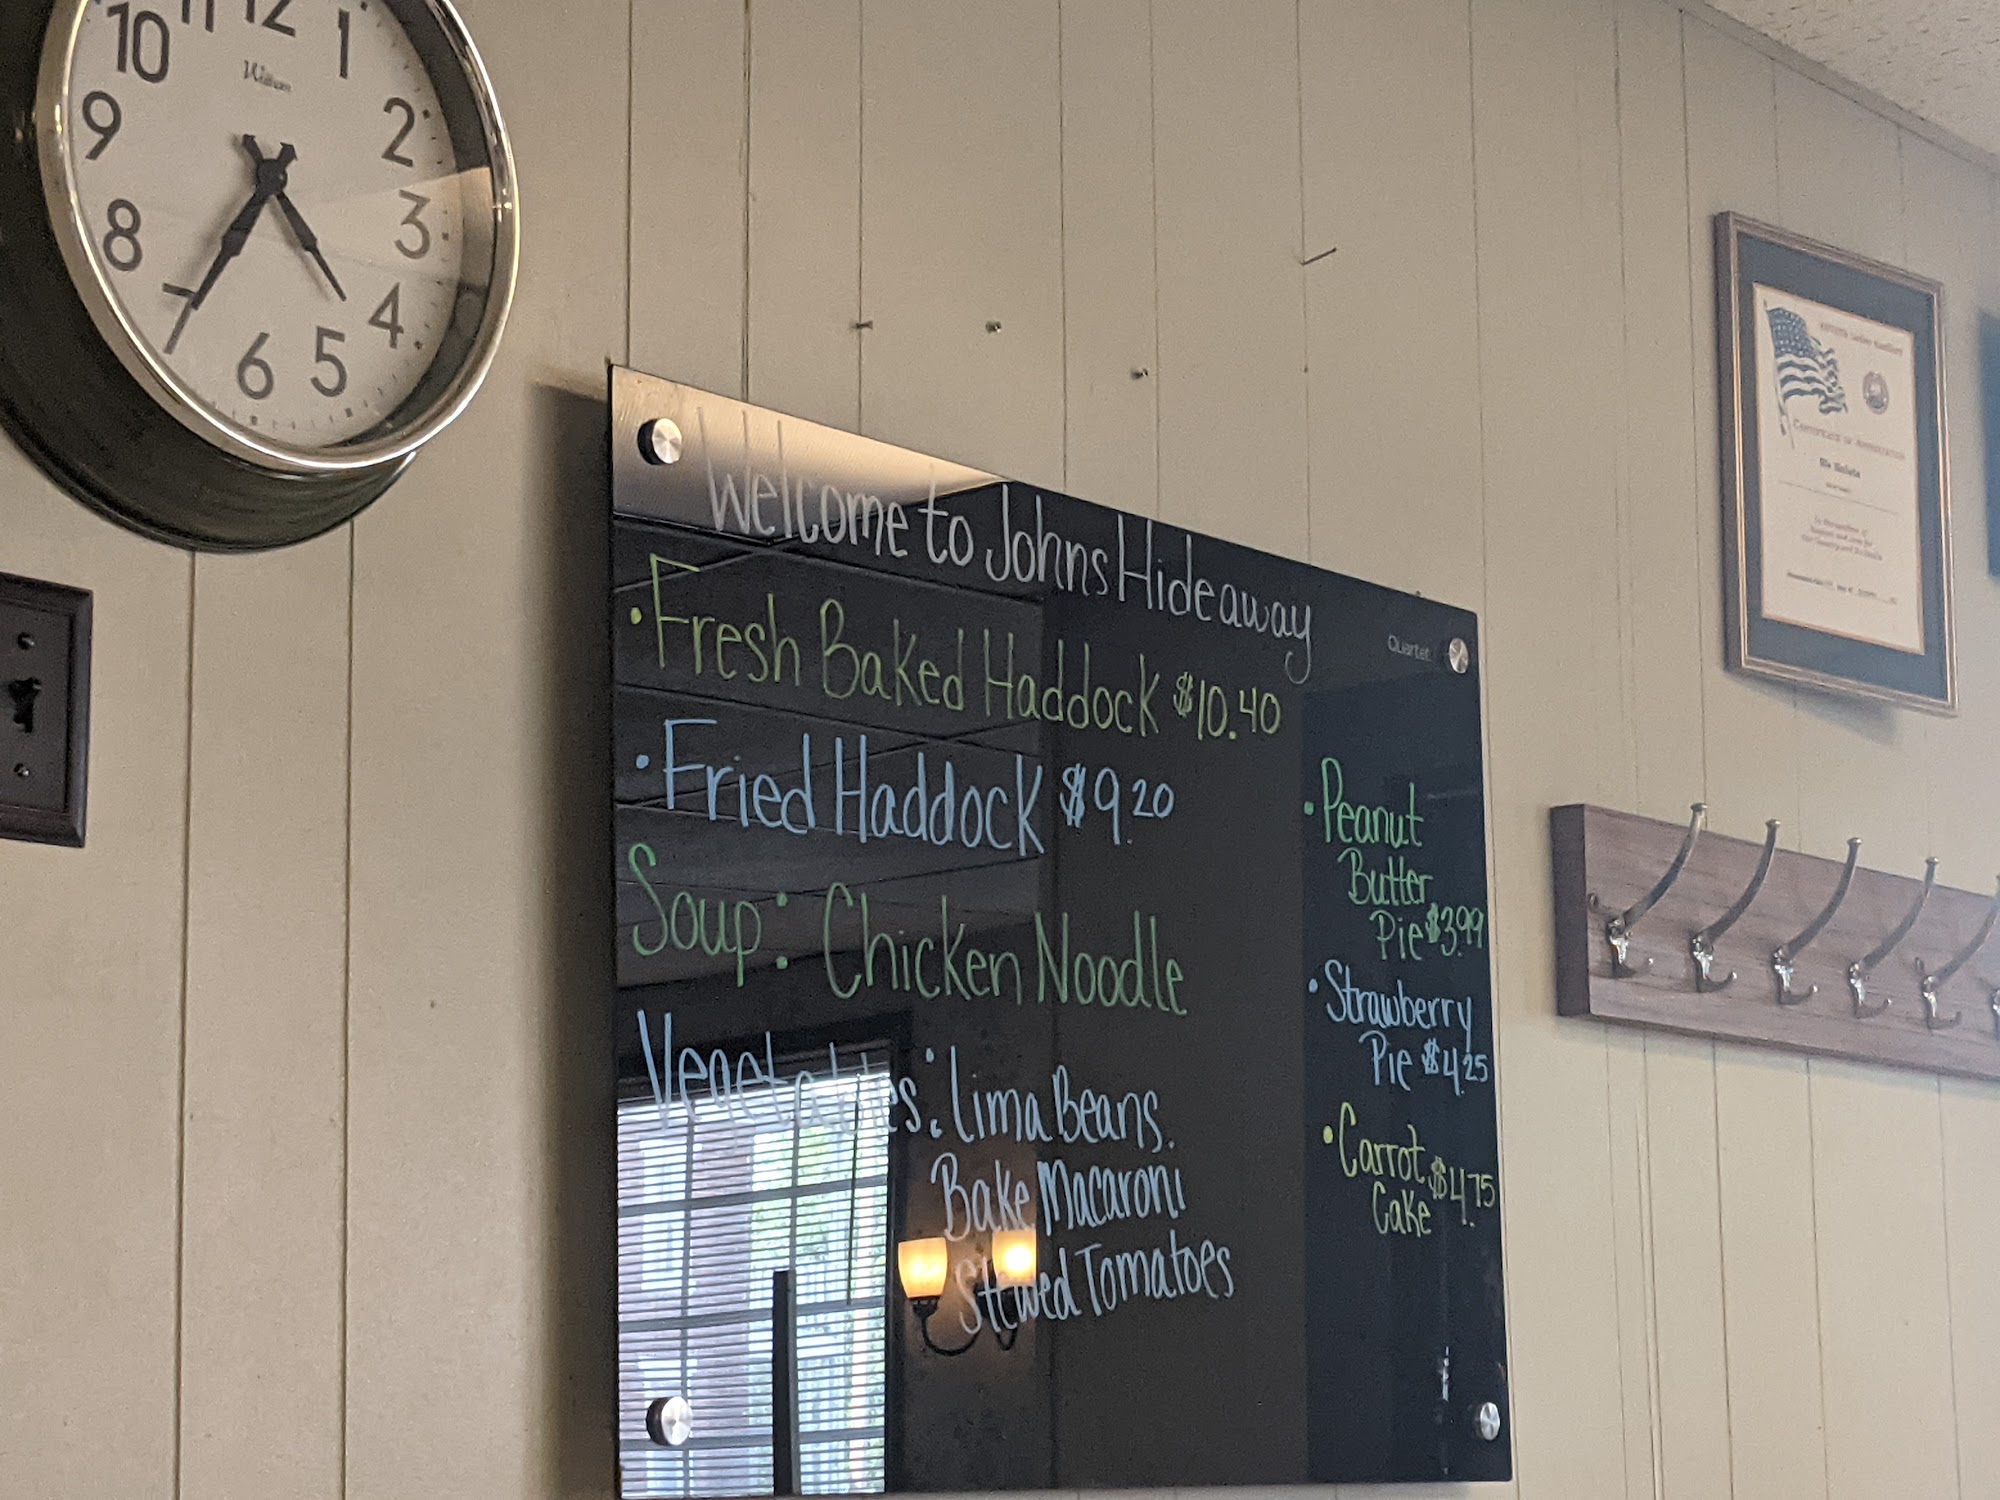 10 11 12 1
9 2
8 3
7 6 5 4
Welcome to Johns Hideaway
Quartet
• Fresh Baked Haddock $10.40
• Fried Haddock $9.20
Soup: Chicken Noodle
Vegetables: Lima Beans.
Bake Macaroni
Stewed Tomatoes
• Peanut
Butter
Pie $3.99
• Strawberry
Pie $4.25
• Carrot
Cake $4.75
Certificate of Appreciation